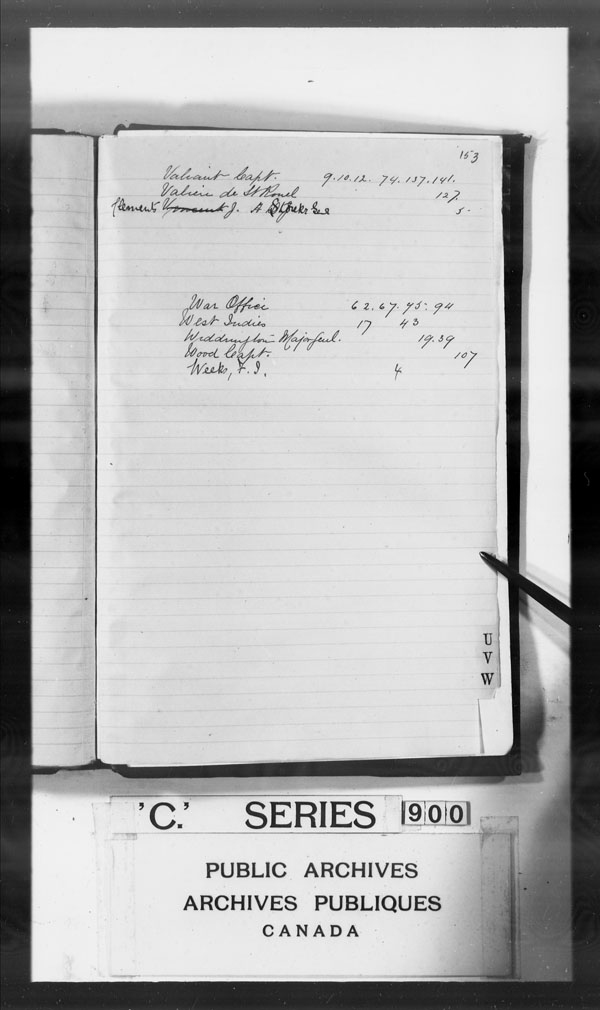 153
Valiant Capt. 9.10.12. 74.137.141.
Valiere de St Reoul 127.
Clements Vincent J. A 5.
War Office 62.67.75.94
West Indies 17 43
Widdrington Major Genl. 19.39
Wood Capt. 107
Weeks, F. J. 4
U
V
W
'C.' SERIES 900
PUBLIC ARCHIVES
ARCHIVES PUBLIQUES
CANADA